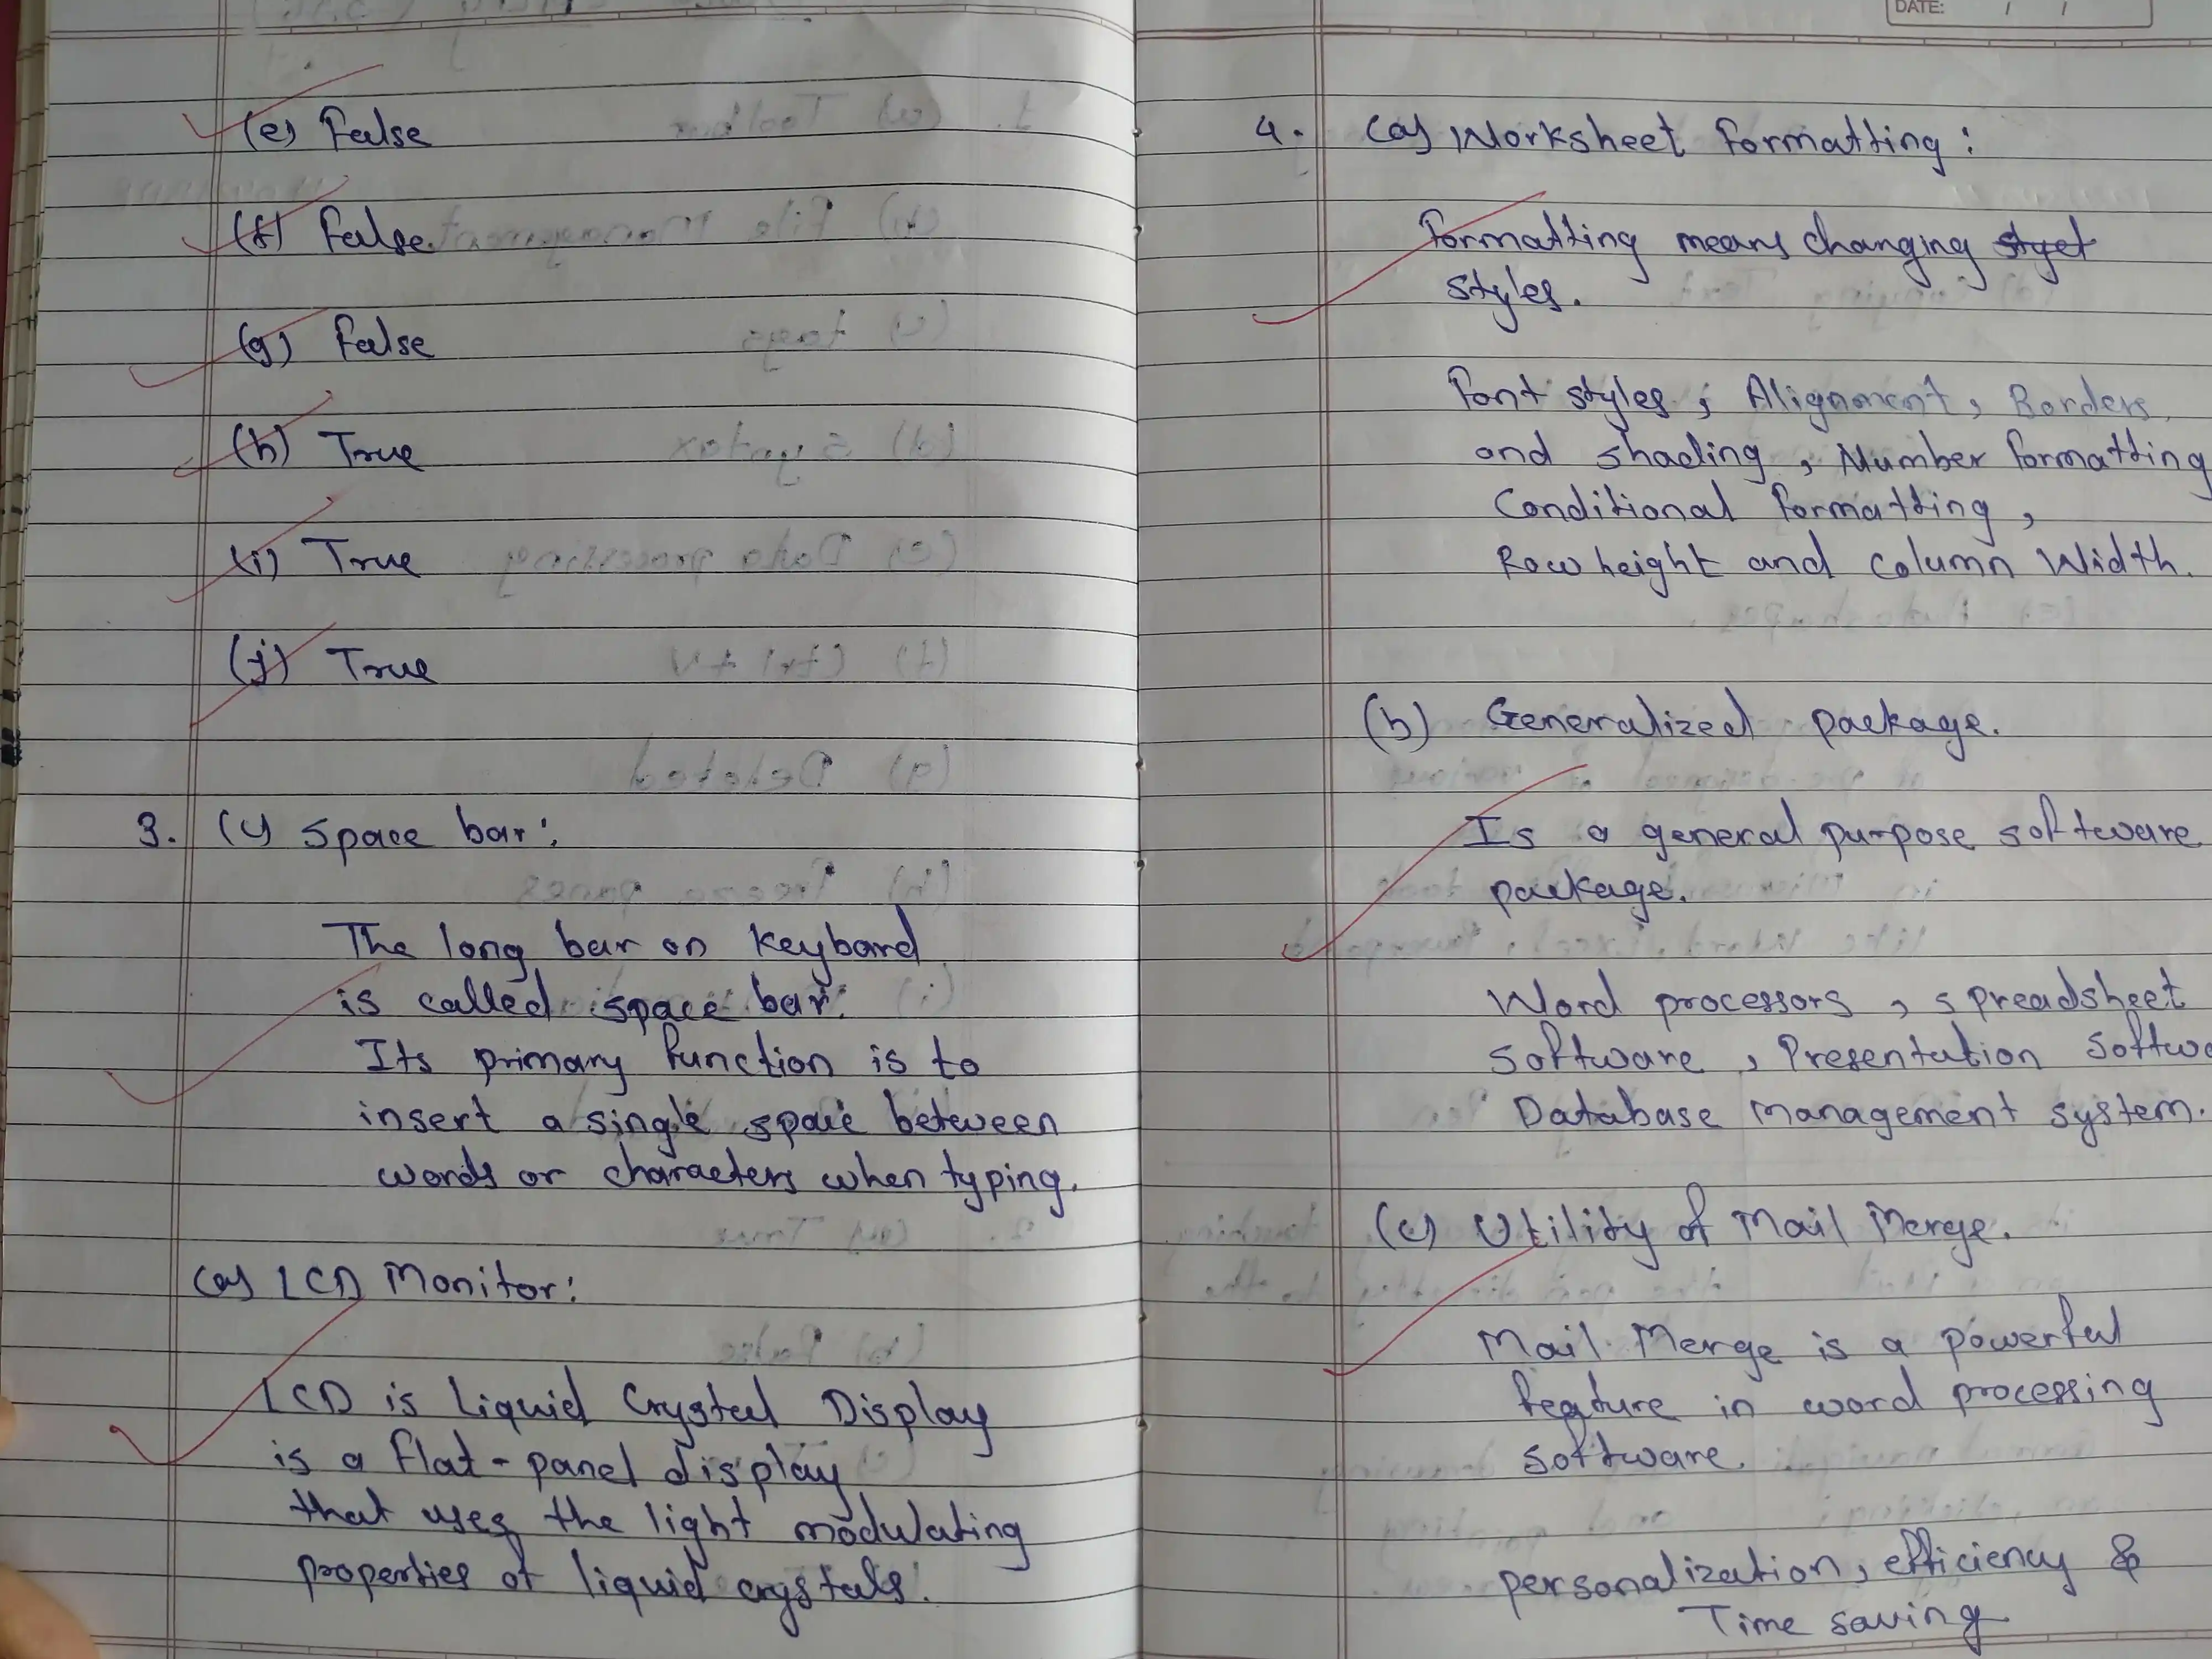 (e) False
(f) False
(g) False
(h) True
(i) True
(j) True
3. (c) Space bar:
The long bar on keybard
is called space bar.
Its primary function is to
insert a single space between
words or characters when typing.
(a) LCD Monitor:
LCD is Liquid Crystal Display
is a flat-panel display
that uses the light modulating
properties of liquid crystals.
DATE: / /
4. (a) Worksheet Formatting:
Formatting means changing styet
styles.
Font styles, Alignment, Borders,
and shading, Number formatting
Conditional formatting,
Row height and column Width.
(b) Generalized package.
Is a general purpose software
package.
Word processors, spreadsheet
software, Presentation Softwa
Database Management system.
(c) Utility of Mail Merge.
Mail Merge is a powerful
feature in word processing
software.
personalization, efficiency &
Time saving